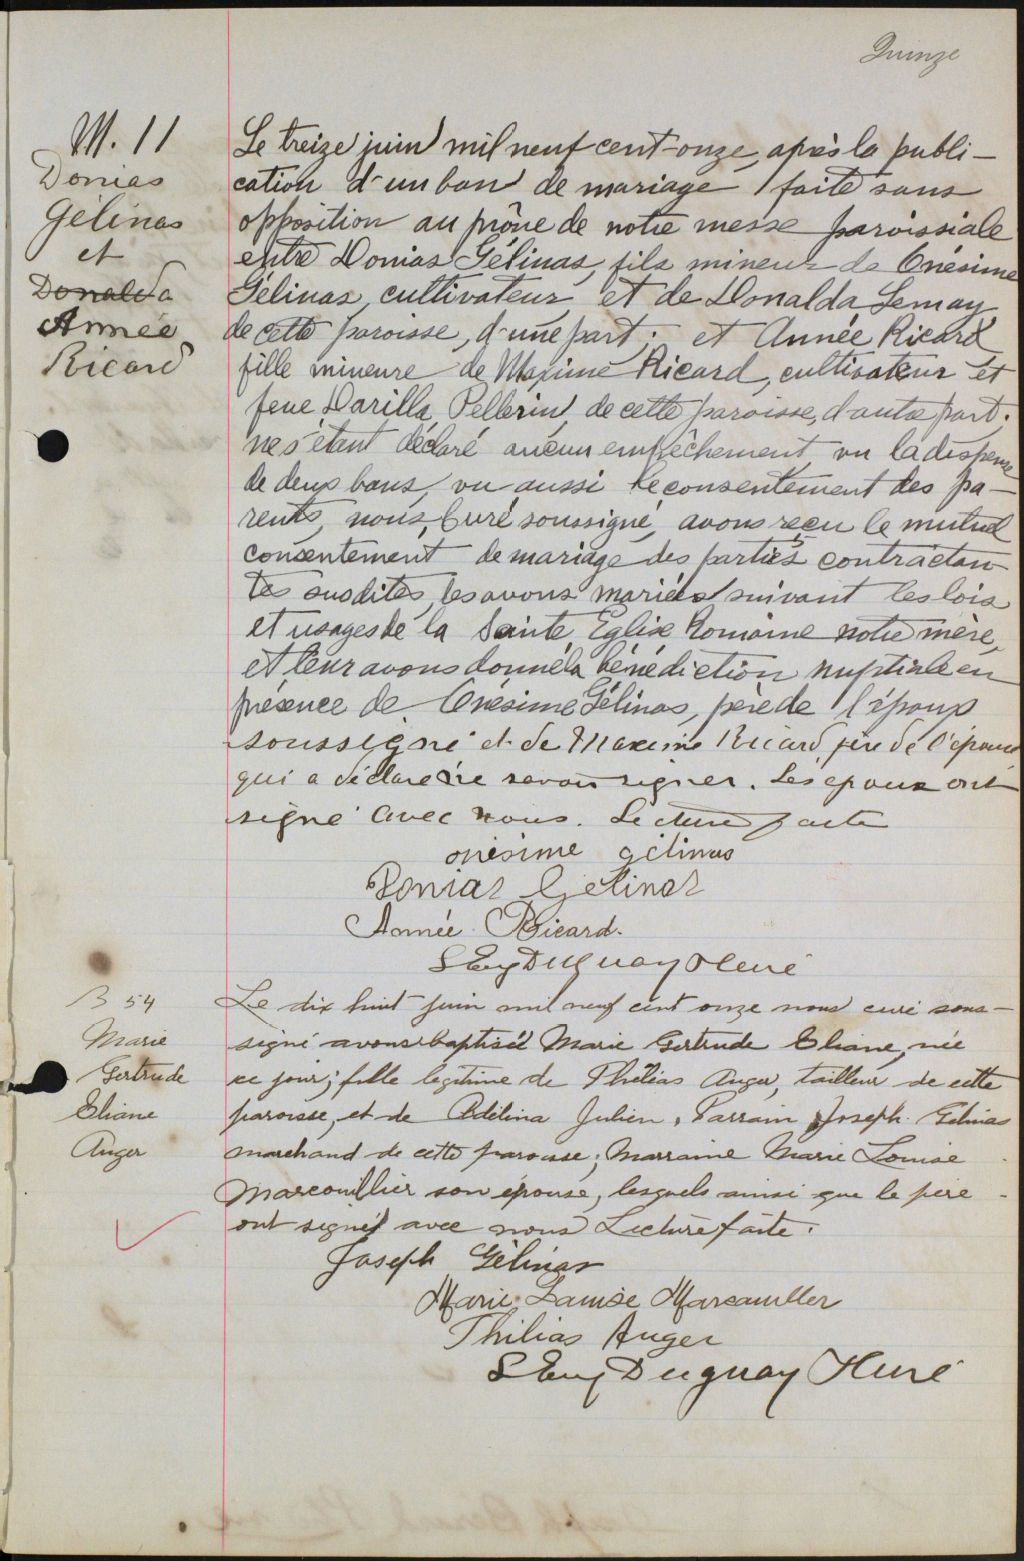 Quinze
M. 11
Donias
Gélinas
et
Donalda
Année
Ricard
Le treize juin mil neuf cent-onze, après la publi-
cation d'un ban de mariage faite sans
opposition au prône de notre messe paroissiale
entre Donias Gélinas, fils mineur de Onésime
Gélinas, cultivateur et de Donalda Lemay,
de cette paroisse, d'une part; et Année Ricard
fille mineure de Maxime Ricard, cultivateur et
feue Darilla Pellerin, de cette paroisse, d'autre part;
ne s'étant déclaré aucun empêchement, vu la dispense
de deux bans, vu aussi le consentement des pa-
rents, nous, Curé soussigné, avons reçu le mutuel
consentement de mariage des parties contractan-
tes susdites, les avons mariés suivant les lois
et usages de la Sainte Eglise Romaine notre mère,
et leur avons donné la bénédiction nuptiale en
présence de Onésime Gélinas, père de l'époux
soussigné et de Maxime Ricard père de l'épouse
qui a déclaré ne savoir signer. Les epoux ont
signé avec nous. Lecture faite
onésime gélinas
Donias Gelinas
Année Ricard.
S Eug Duguay Curé
B 54
Marie
Gertrude
Eliane
Auger
Le dix huit juin mil neuf cent onze nous curé sous-
signé avons baptisé Marie Gertrude Eliane, née
ce jour; fille legitime de Thélias Auger, tailleur de cette
paroisse, et de Adélina Julien. Parrain Joseph Gélinas
marchand de cette paroisse; Marraine Marie Louise
Marcouillier son épouse, lesquels ainsi que le père
ont signé avec nous Lecture faite.
Joseph Gélinas
Marie Louise Marcouiller
Thilias Auger
S Eug Duguay Curé